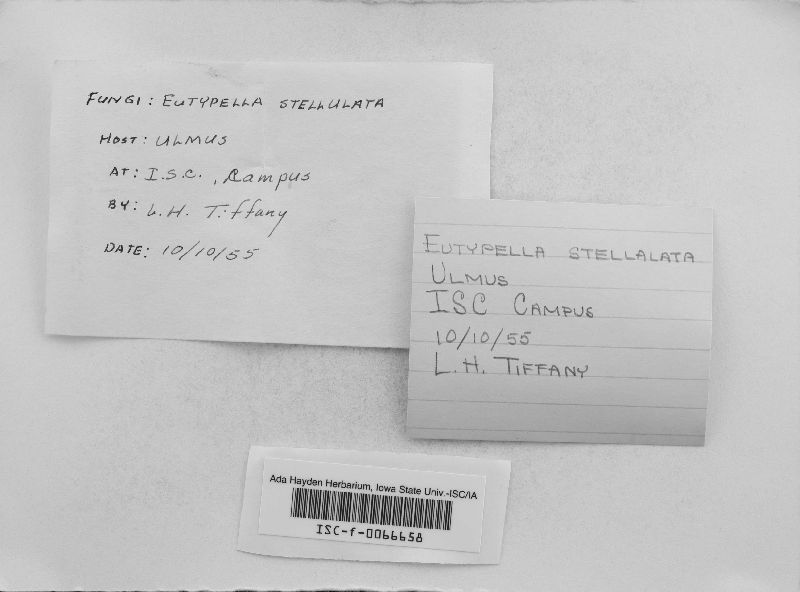 FUNGI: EUTYPELLA STELLULATA
HOST: ULMUS
AT: I.S.C., Campus
BY: L.H. Tiffany
DATE: 10/10/55
EUTYPELLA STELLALATA
ULMUS
ISC CAMPUS
10/10/55
L.H. TIFFANY
Ada Hayden Herbarium, Iowa State Univ.-ISC/IA
ISC-f-0066658